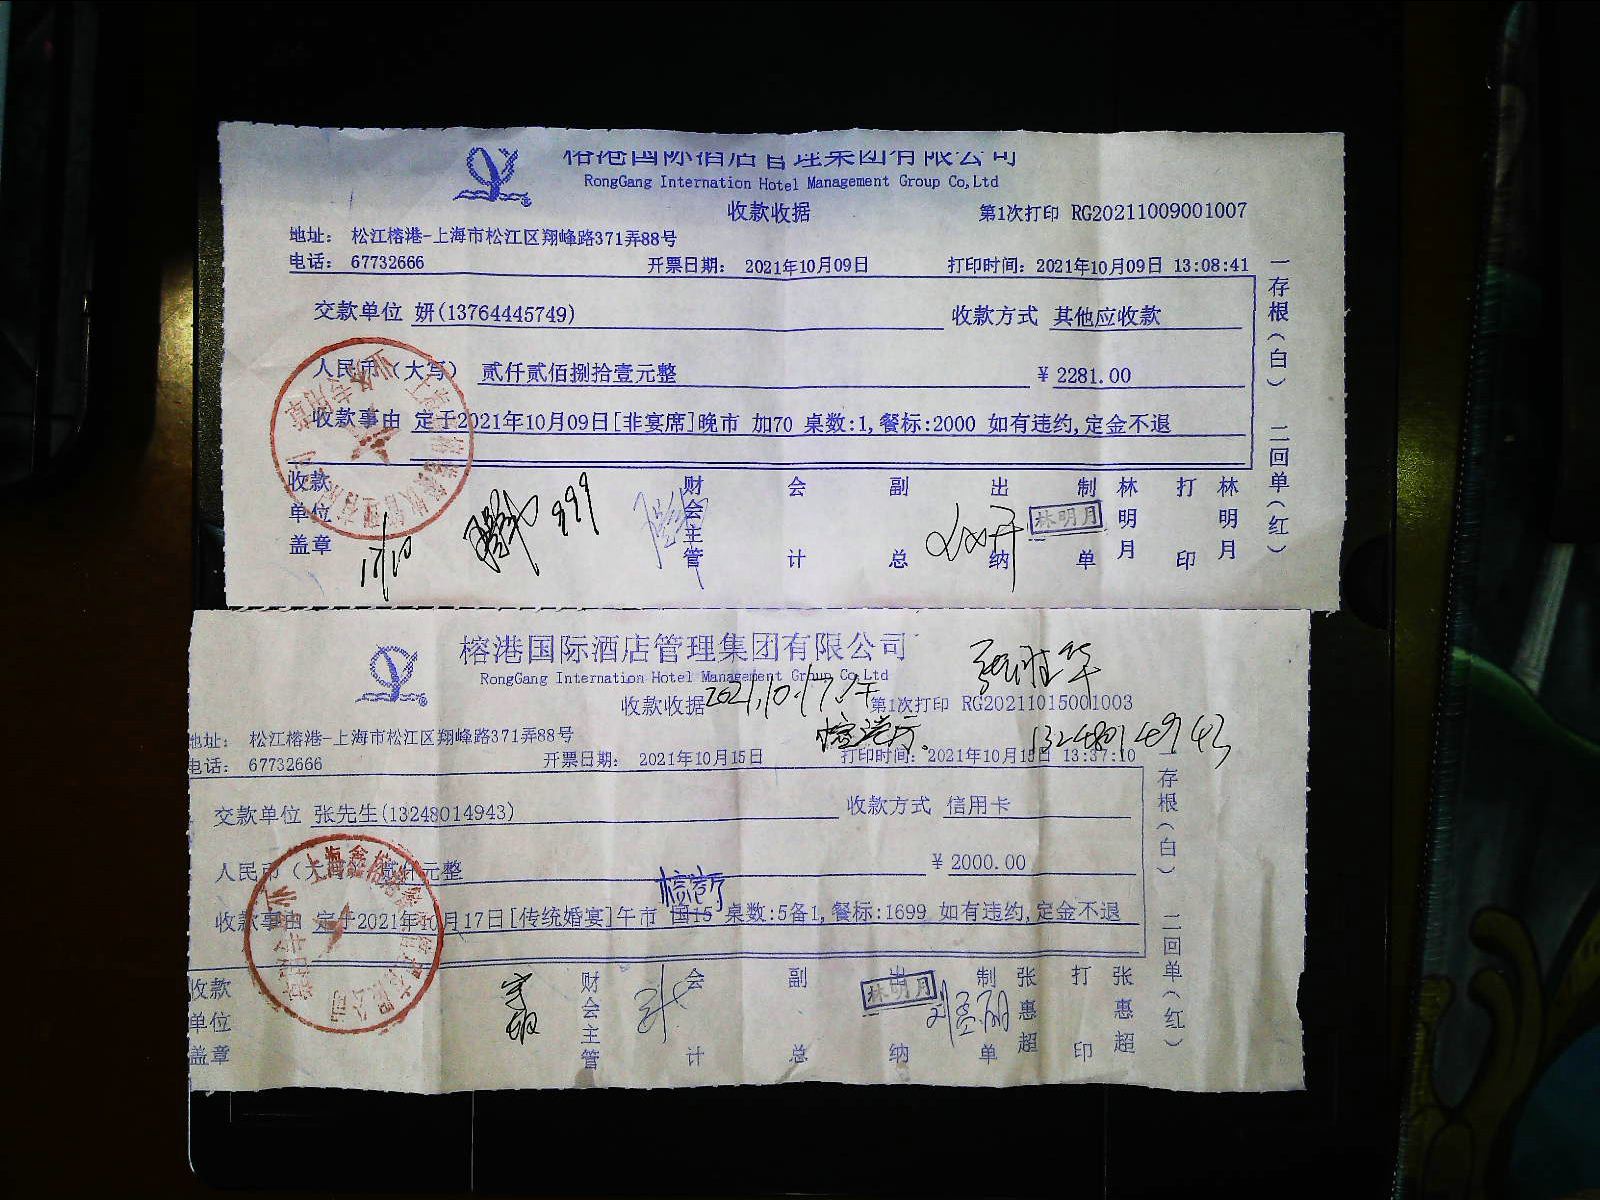 榕港国际酒店管理集团有限公司
RongGang Internation Hotel Management Group Co,Ltd
收款收据 第1次打印 RG20211009001007
地址: 松江榕港-上海市松江区翔峰路371弄88号
电话: 67732666 开票日期: 2021年10月09日 打印时间: 2021年10月09日 13:08:41
交款单位 妍(13764445749) 收款方式 其他应收款
人民币(大写) 贰仟贰佰捌拾壹元整 ¥ 2281.00
收款事由 定于2021年10月09日[非宴席]晚市 加70 桌数:1,餐标:2000 如有违约,定金不退
一存根(白) 二回单(红)
收款单位盖章 财会主管 会计 副总 出纳 制单 林明月 打印 林明月
林明月
17/10 999
榕港国际酒店管理集团有限公司
RongGang Internation Hotel Management Group Co,Ltd
张胜华
收款收据 2021.10.17.午 第1次打印 RG20211015001003
榕港厅 13248014943
地址: 松江榕港-上海市松江区翔峰路371弄88号
电话: 67732666 开票日期: 2021年10月15日 打印时间: 2021年10月15日 13:37:10
交款单位 张先生(13248014943) 收款方式 信用卡
人民币(大写) 贰仟元整 ¥ 2000.00
榕港厅
收款事由 定于2021年10月17日[传统婚宴]午市 国15 桌数:5备1,餐标:1699 如有违约,定金不退
一存根(白) 二回单(红)
收款单位盖章 财会主管 会计 副总 出纳 制单 张惠超 打印 张惠超
林明月